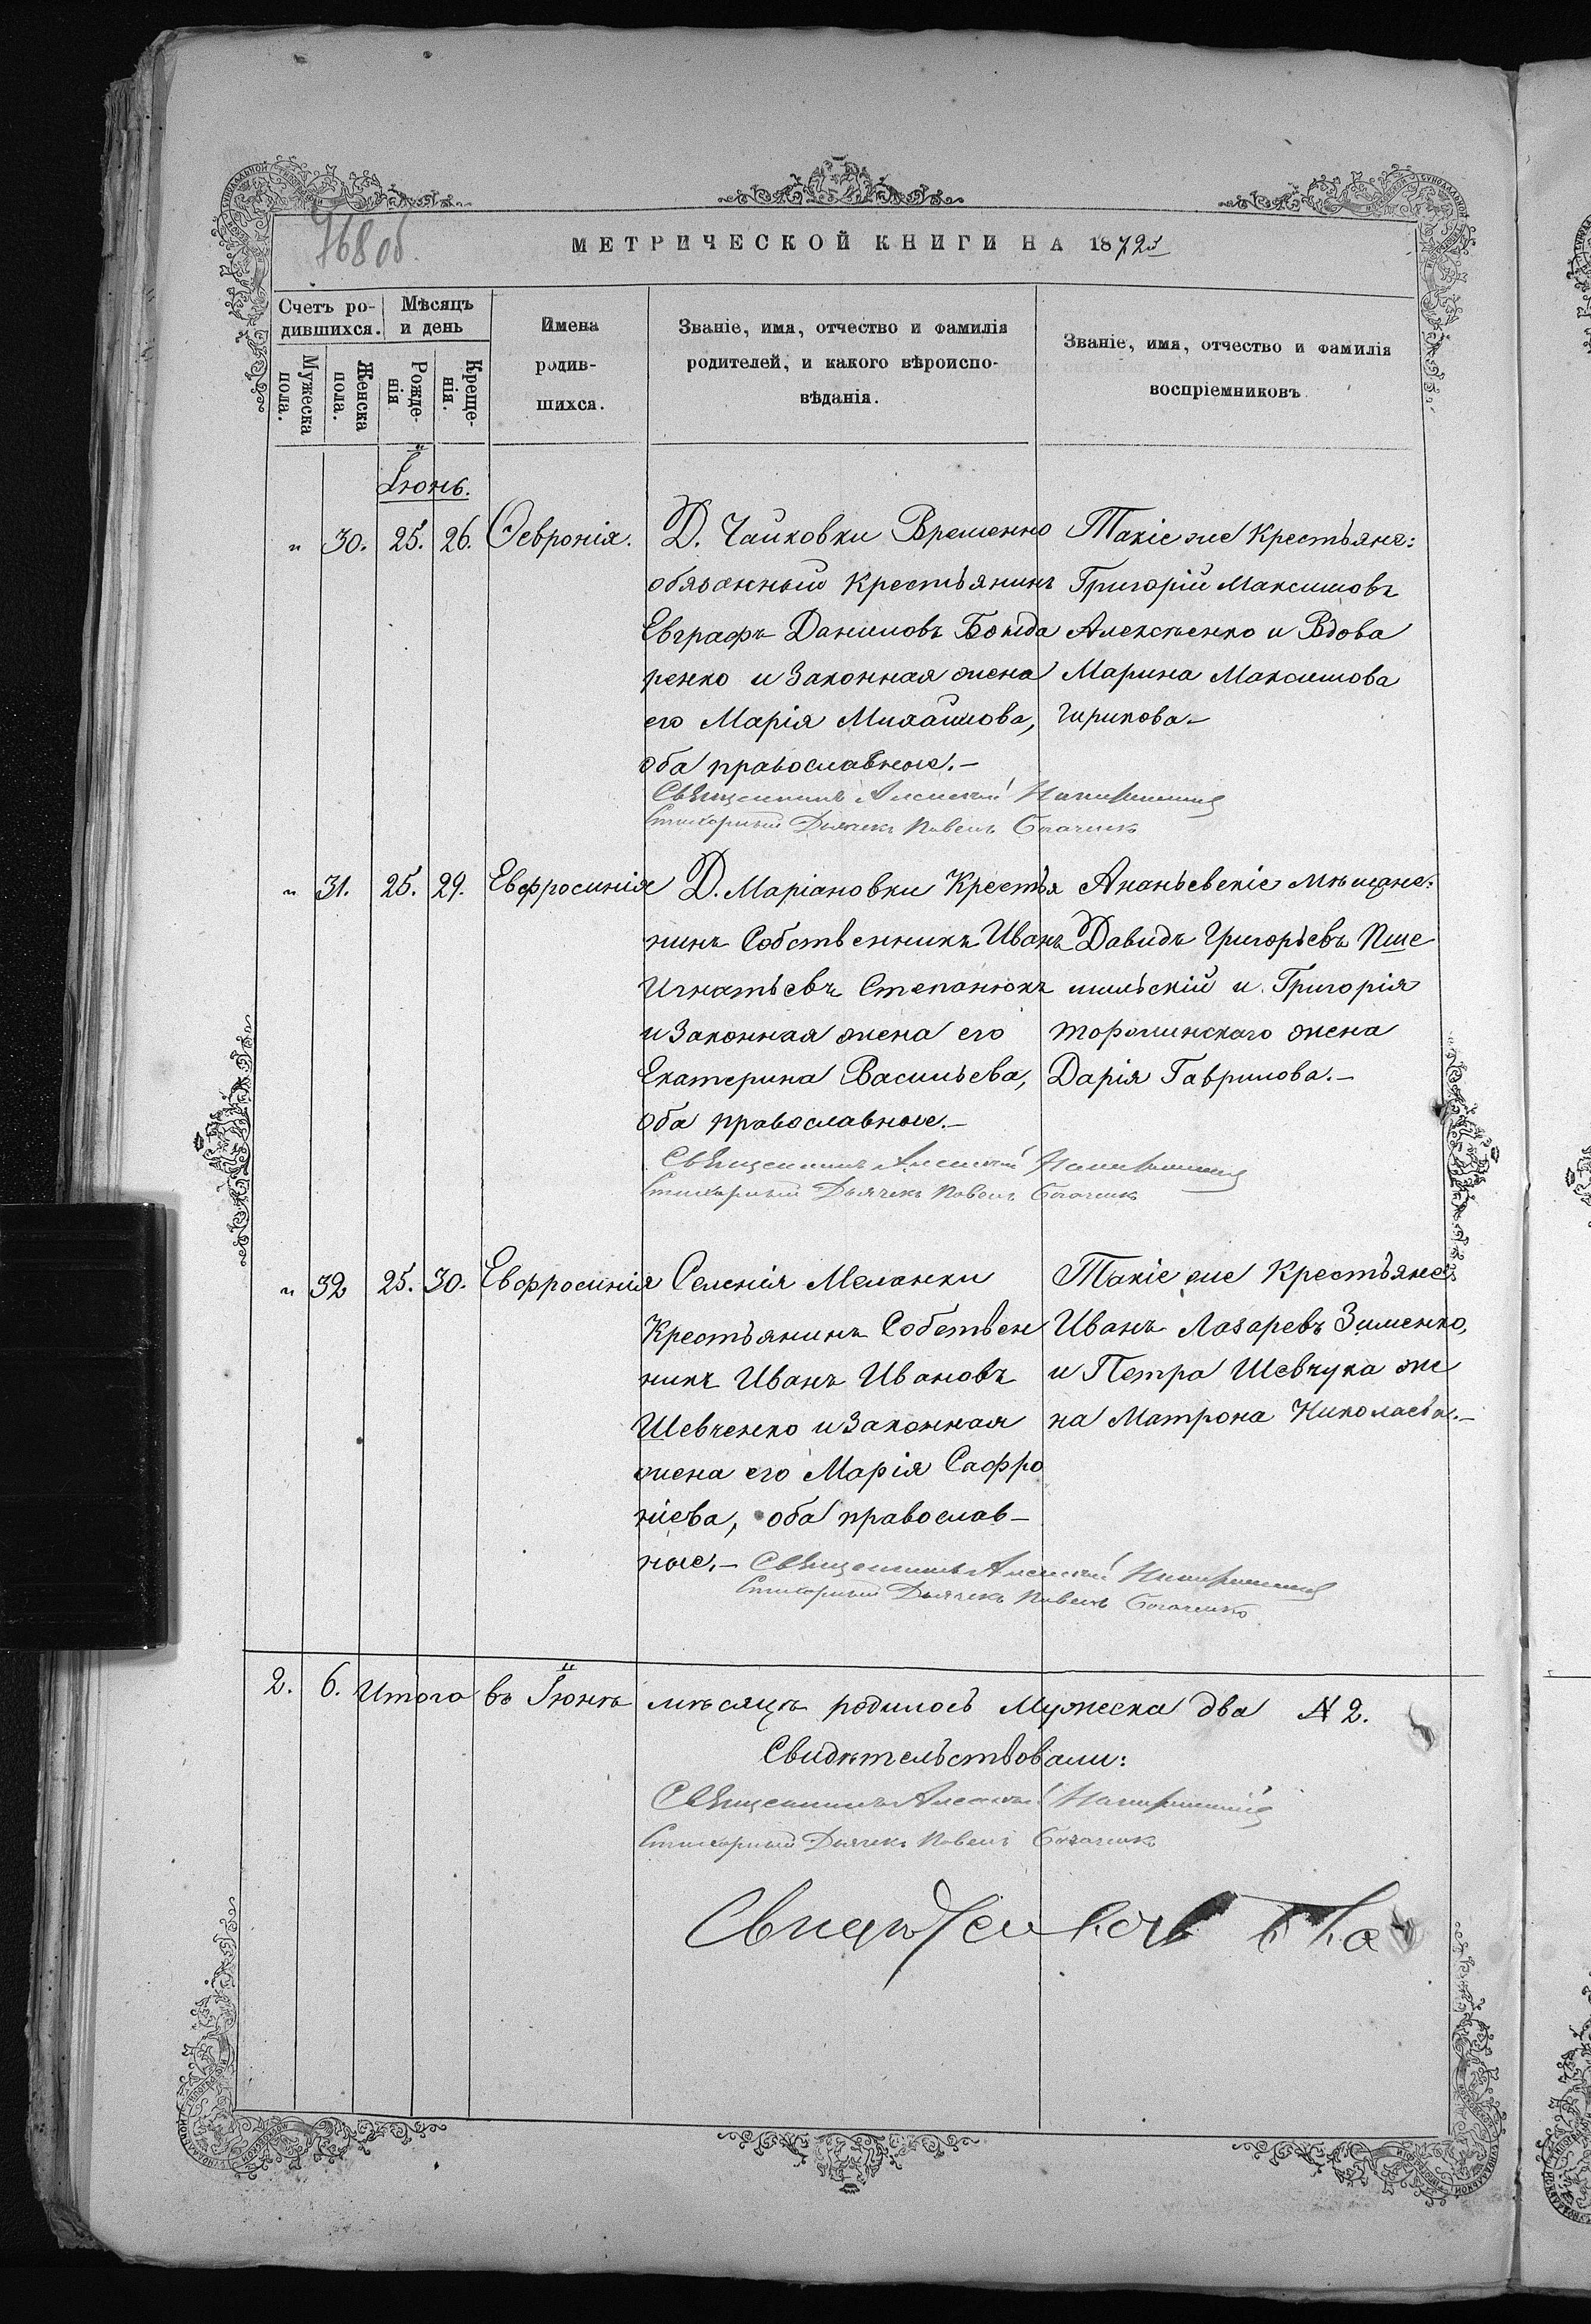 768 об.
МЕТРИЧЕСКОЙ КНИГИ НА 1872
Счетъ ро-
дившихся.
Мѣсяцъ
и день
Мужеска
пола.
Женска
пола.
Рожде-
нія
Креще-
нія.
Имена
родив-
шихся.
Званіе, имя, отчество и фамилія
родителей, и какого вѣроиспо-
вѣданія.
Званіе, имя, отчество и фамилія
воспріемниковъ.
Іюнь.
" 30. 25. 26. Февронія.
Д. Чайковки Временно
обязанный Крестьянинъ
Евграфъ Даниловъ Бонда
ренко и Законная жена
его Марія Михайлова,
оба православные.-
Такіе же Крестьяне:
Григорій Максимовъ
Алексѣенко и Вдова
Марина Максимова
Чирикова.-
Священникъ Алексѣй
Стихарный Дьячекъ Павелъ
" 31. 25. 29. Евфросинія
Д. Маріановки Крестья
нинъ Собственникъ Иванъ
Игнатьевъ Степанюкъ
и Законная жена его
Екатерина Васильева,
оба православные.-
Ананьевскіе мѣщане:
Давидъ Григорьевъ Пше
мильскій и Григорія
жена
Дарія Гаврилова.-
Священникъ Алексѣй
Стихарный Дьячекъ Павелъ
" 32 25. 30. Евфросинія
Селенія Меланки
Крестьянинъ Собствен
никъ Иванъ Ивановъ
Шевченко и Законная
жена его Марія Сафро
ніева, оба православ-
ные.-
Такіе же Крестьяне
Иванъ Лазаревъ Зименко,
и Петра Шевчука же
на Матрона Николаева.-
Священникъ Алексѣй
Стихарный Дьячекъ Павелъ
2. 6. Итого въ Іюнѣ мѣсяцѣ родилось Мужеска два № 2.
Свидѣтельствовали:
Священникъ Алексѣй
Стихарный Дьячекъ Павелъ